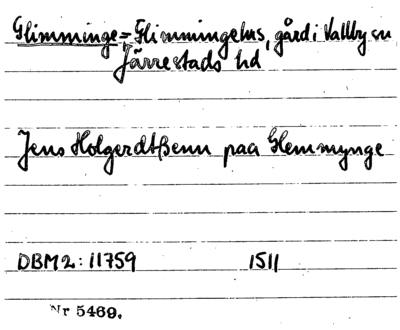 Glimminge = Glimmingehus, gård i Vallby sn
Järrestads hd
Jens Holgerdtßenn paa Glemmynge
DBM2: 11759 1511
Nr 5469.